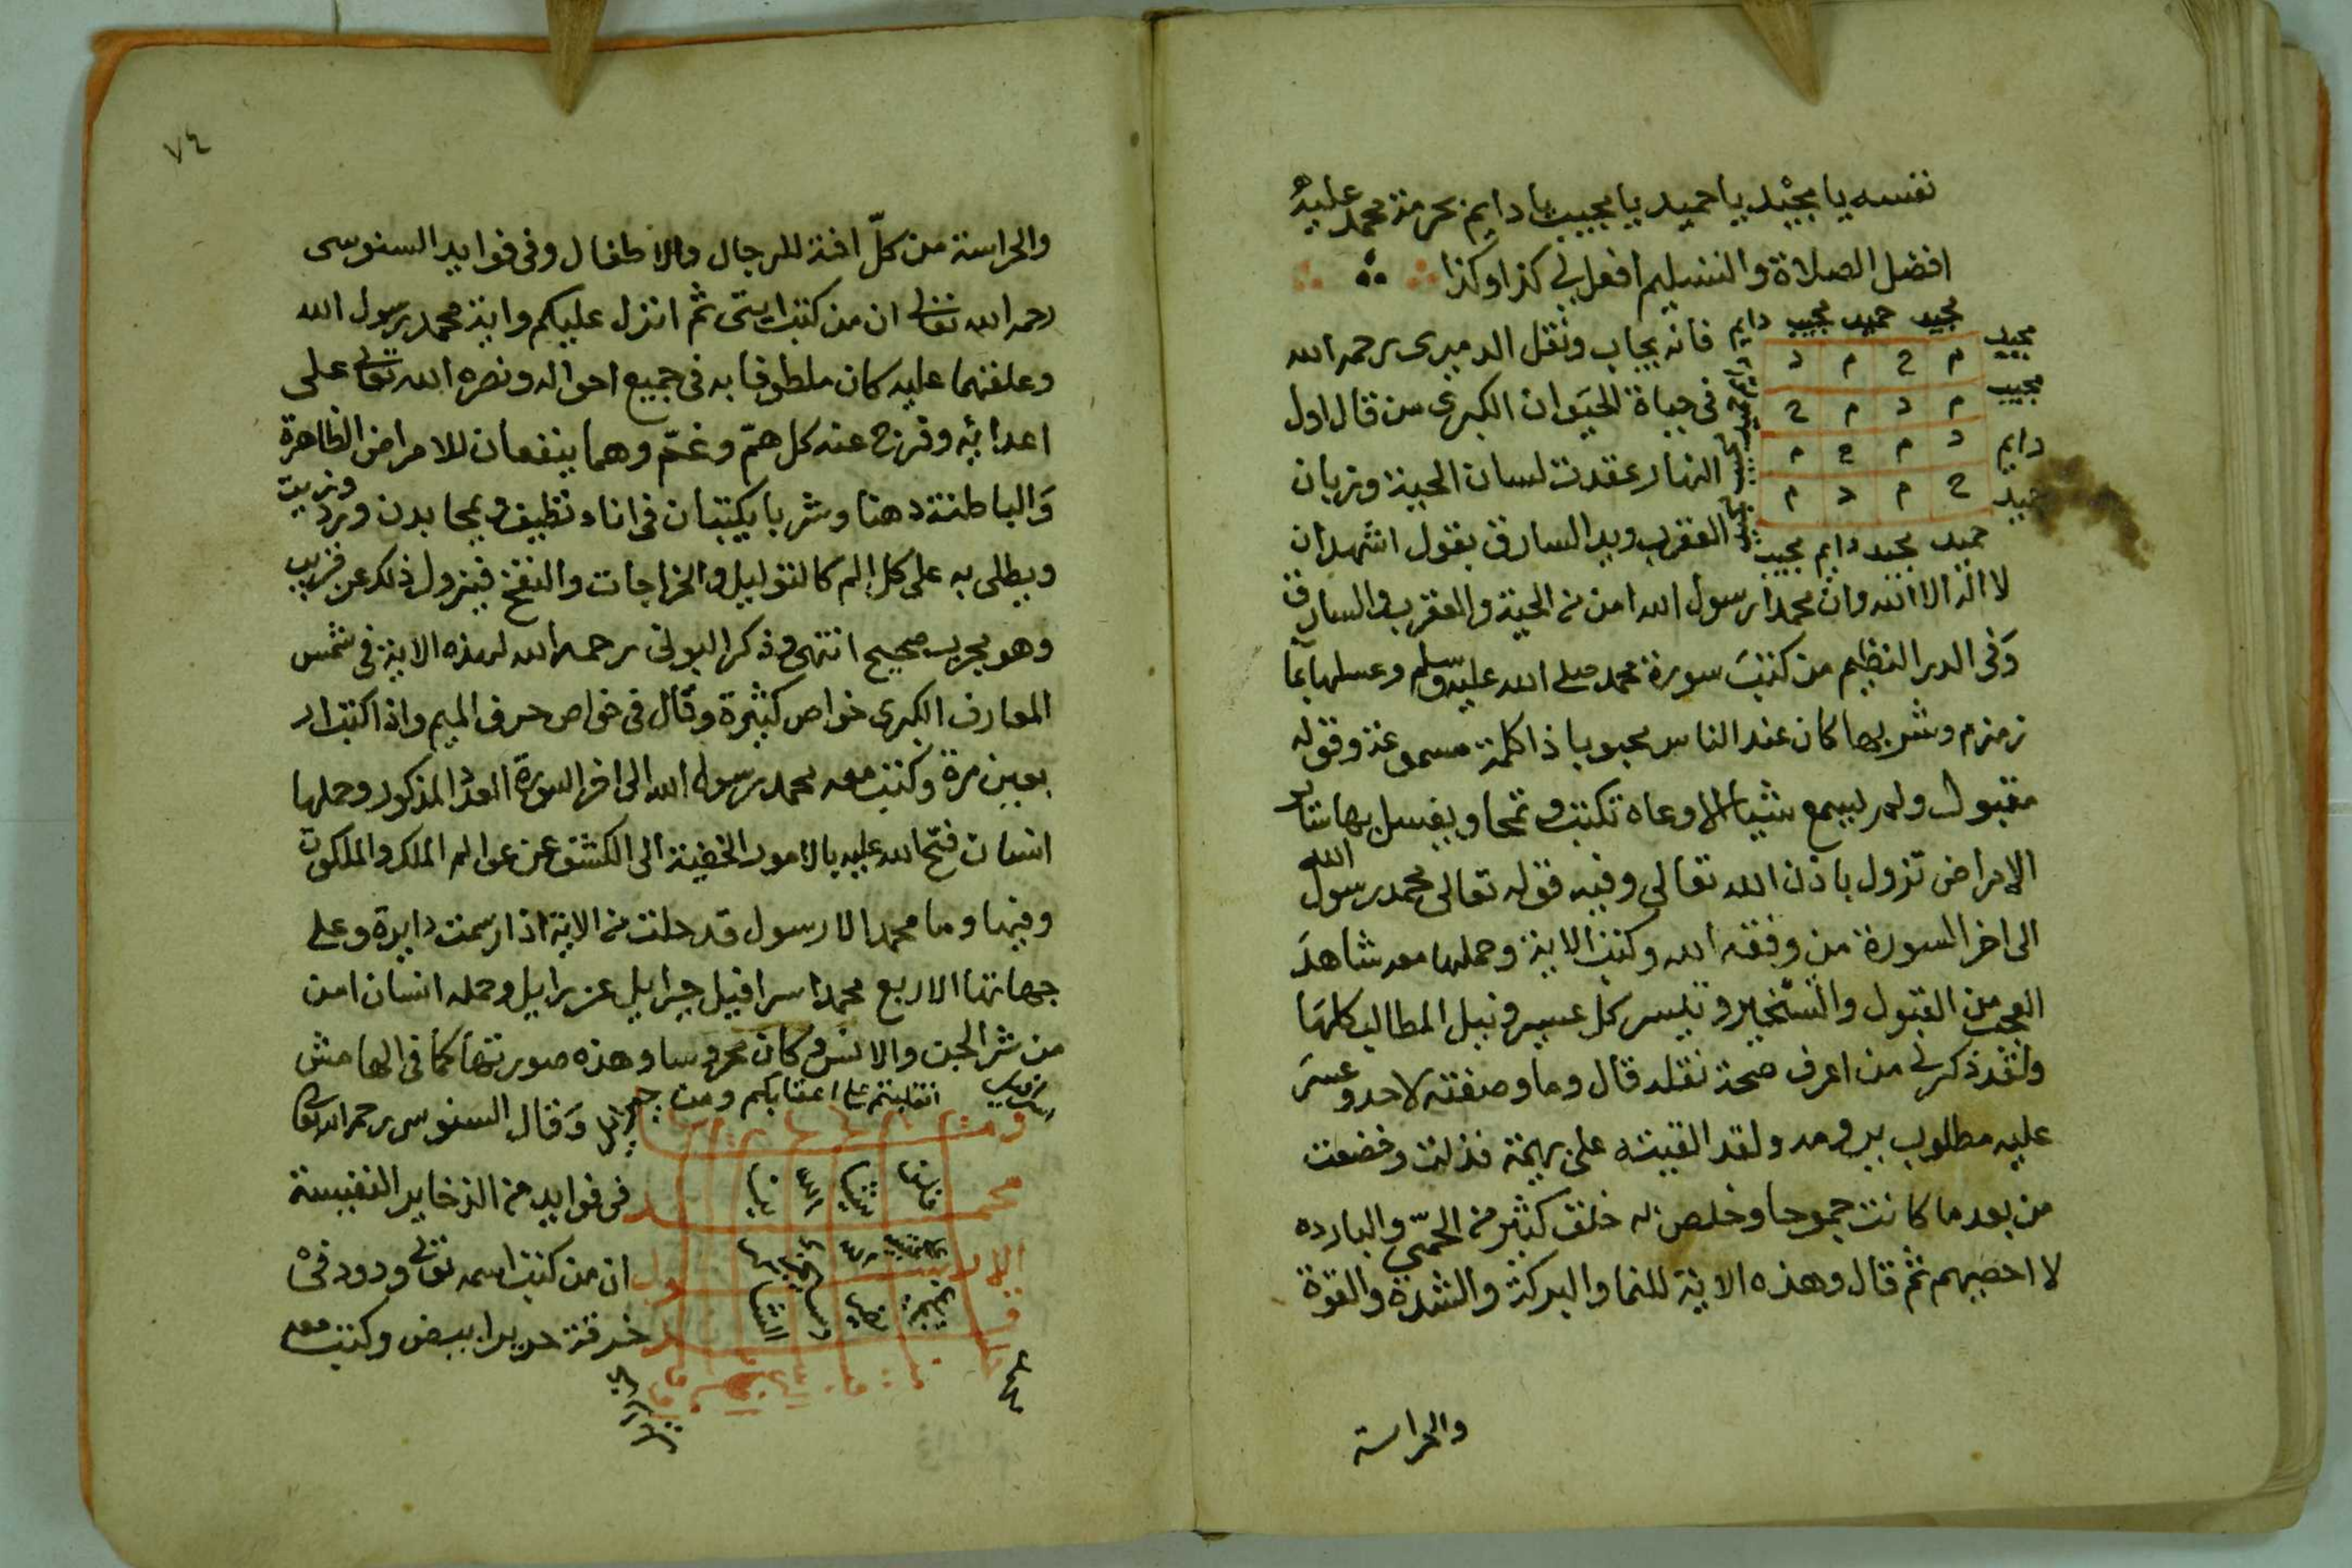 نفسه يا مجيد يا حميد يا مجيب يا دايم بحرمة محمد عليه
افضل الصلاة والتسليم افعل لي كذا وكذا
مجيد حميد مجيب دايم
مجيد
م ح م د
مجيب
م د م ح
دايم
د م ح م
حميد
ح م د م
حميد مجيد دايم مجيب
فانه يجاب ونقل الدميرى رحمه الله
فى حياة الحيوان الكبرى من قال اول
النهار عقدت لسان الحية وزبان
العقرب ويد السارق بقول اشهد ان
لا اله الا الله وان محمدا رسول الله امن من الحية والعقرب والسارق
وفى الدر النظيم من كتب سورة محمد صلى الله عليه وسلم وغسلها بما
زمزم وشربها كان عند الناس محبوبا ذا كلمة مسموعة وقوله
مقبول ولم يسمع شيا الا وعاه تكتب وتمحا ويغسل بها ساير
الامراض تزول باذن الله تعالى وفيه قوله تعالى محمد رسول الله
الى اخر السورة من وفقه الله وكتب الاية وحملها معه شاهد
العجب من القبول والتسخير وتيسر كل عسير ونيل المطالب كلها
ولقد ذكر لى من اعرف صحة نقله قال وما وصفته لاحد وعسر
عليه مطلوب يرومه ولقد القيته على بهيمة فذلت وخضعت
من بعد ما كانت جموحا وخلص به خلق كثير من الحمى والبارده
لا احصيهم ثم قال وهذه الاية للنما والبركة والشدة والقوة
والحراسة
٧٤
والحراسة من كل افة للرجال والاطفال وفى فوايد السنوسى
رحمه الله تعالى ان من كتب ايتى ثم انزل عليكم واية محمد رسول الله
وعلقهما عليه كان ملطوفا به فى جميع احواله ونصره الله تعالى على
اعدائه وفرج عنه كل هم وغم وهما ينفعان للامراض الظاهرة
والباطنة دهنا وشربا يكتبان فى اناء نظيف ويمحا بدن ورد وزيت
ويطلى به على كل الم كالتوليل والخراجات والنفخ فيزول ذلك عن قريب
وهو مجرب صحيح انتهى وذكر البونى رحمه الله لهذه الاية فى شمس
المعارف الكبرى خواص كثيرة وقال فى خواص حرف الميم واذا كتب ار
بعين مرة وكتب معه محمد رسول الله الى اخر السورة العدد المذكور وحملها
انسان فتح الله عليه بالامور الخفية الى الكشف عن عوالم الملك والملكوت
وفيها وما محمد الا رسول قد خلت من الاية اذا رسمت دايرة وعلى
جهاتها الاربع محمد اسرافيل جبرايل عزرايل وحمله انسان امن
من شر الجن والانس وكان محروسا وهذه صورتها كما فى الهامش
انقلبتم على اعقابكم ومن
وقال السنوسى رحمه الله تعالى
فى فوايده من الذخاير النفيسة
ان من كتب اسمه تعالى ودود فى
خرقة حرير ابيض وكتب معه